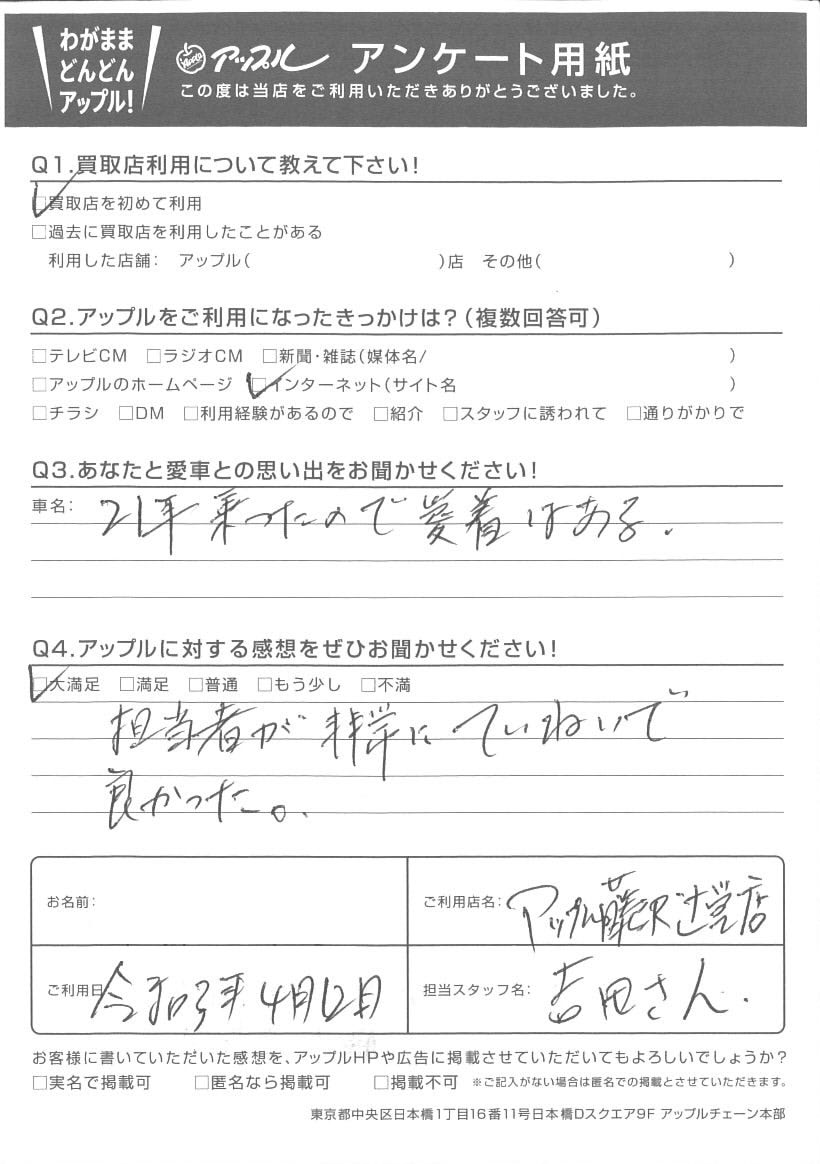 わがまま
どんどん
アップル!
アップル アンケート用紙
この度は当店をご利用いただきありがとうございました。
Q1.買取店利用について教えて下さい!
□買取店を初めて利用
□過去に買取店を利用したことがある
利用した店舗: アップル( )店 その他( )
Q2.アップルをご利用になったきっかけは?(複数回答可)
□テレビCM □ラジオCM □新聞・雑誌(媒体名/ )
□アップルのホームページ □インターネット(サイト名 )
□チラシ □DM □利用経験があるので □紹介 □スタッフに誘われて □通りがかりで
Q3.あなたと愛車との思い出をお聞かせください!
車名: 21年乗ったので愛着はある.
Q4.アップルに対する感想をぜひお聞かせください!
□大満足 □満足 □普通 □もう少し □不満
担当者が非常に ていねいで
良かった。
お名前:
ご利用店名: アップル藤沢辻堂店
ご利用日 令和3年4月12日
担当スタッフ名: 吉田さん.
お客様に書いていただいた感想を、アップルHPや広告に掲載させていただいてもよろしいでしょうか?
□実名で掲載可 □匿名なら掲載可 □掲載不可 ※ご記入がない場合は匿名での掲載とさせていただきます。
東京都中央区日本橋1丁目16番11号日本橋Dスクエア9F アップルチェーン本部